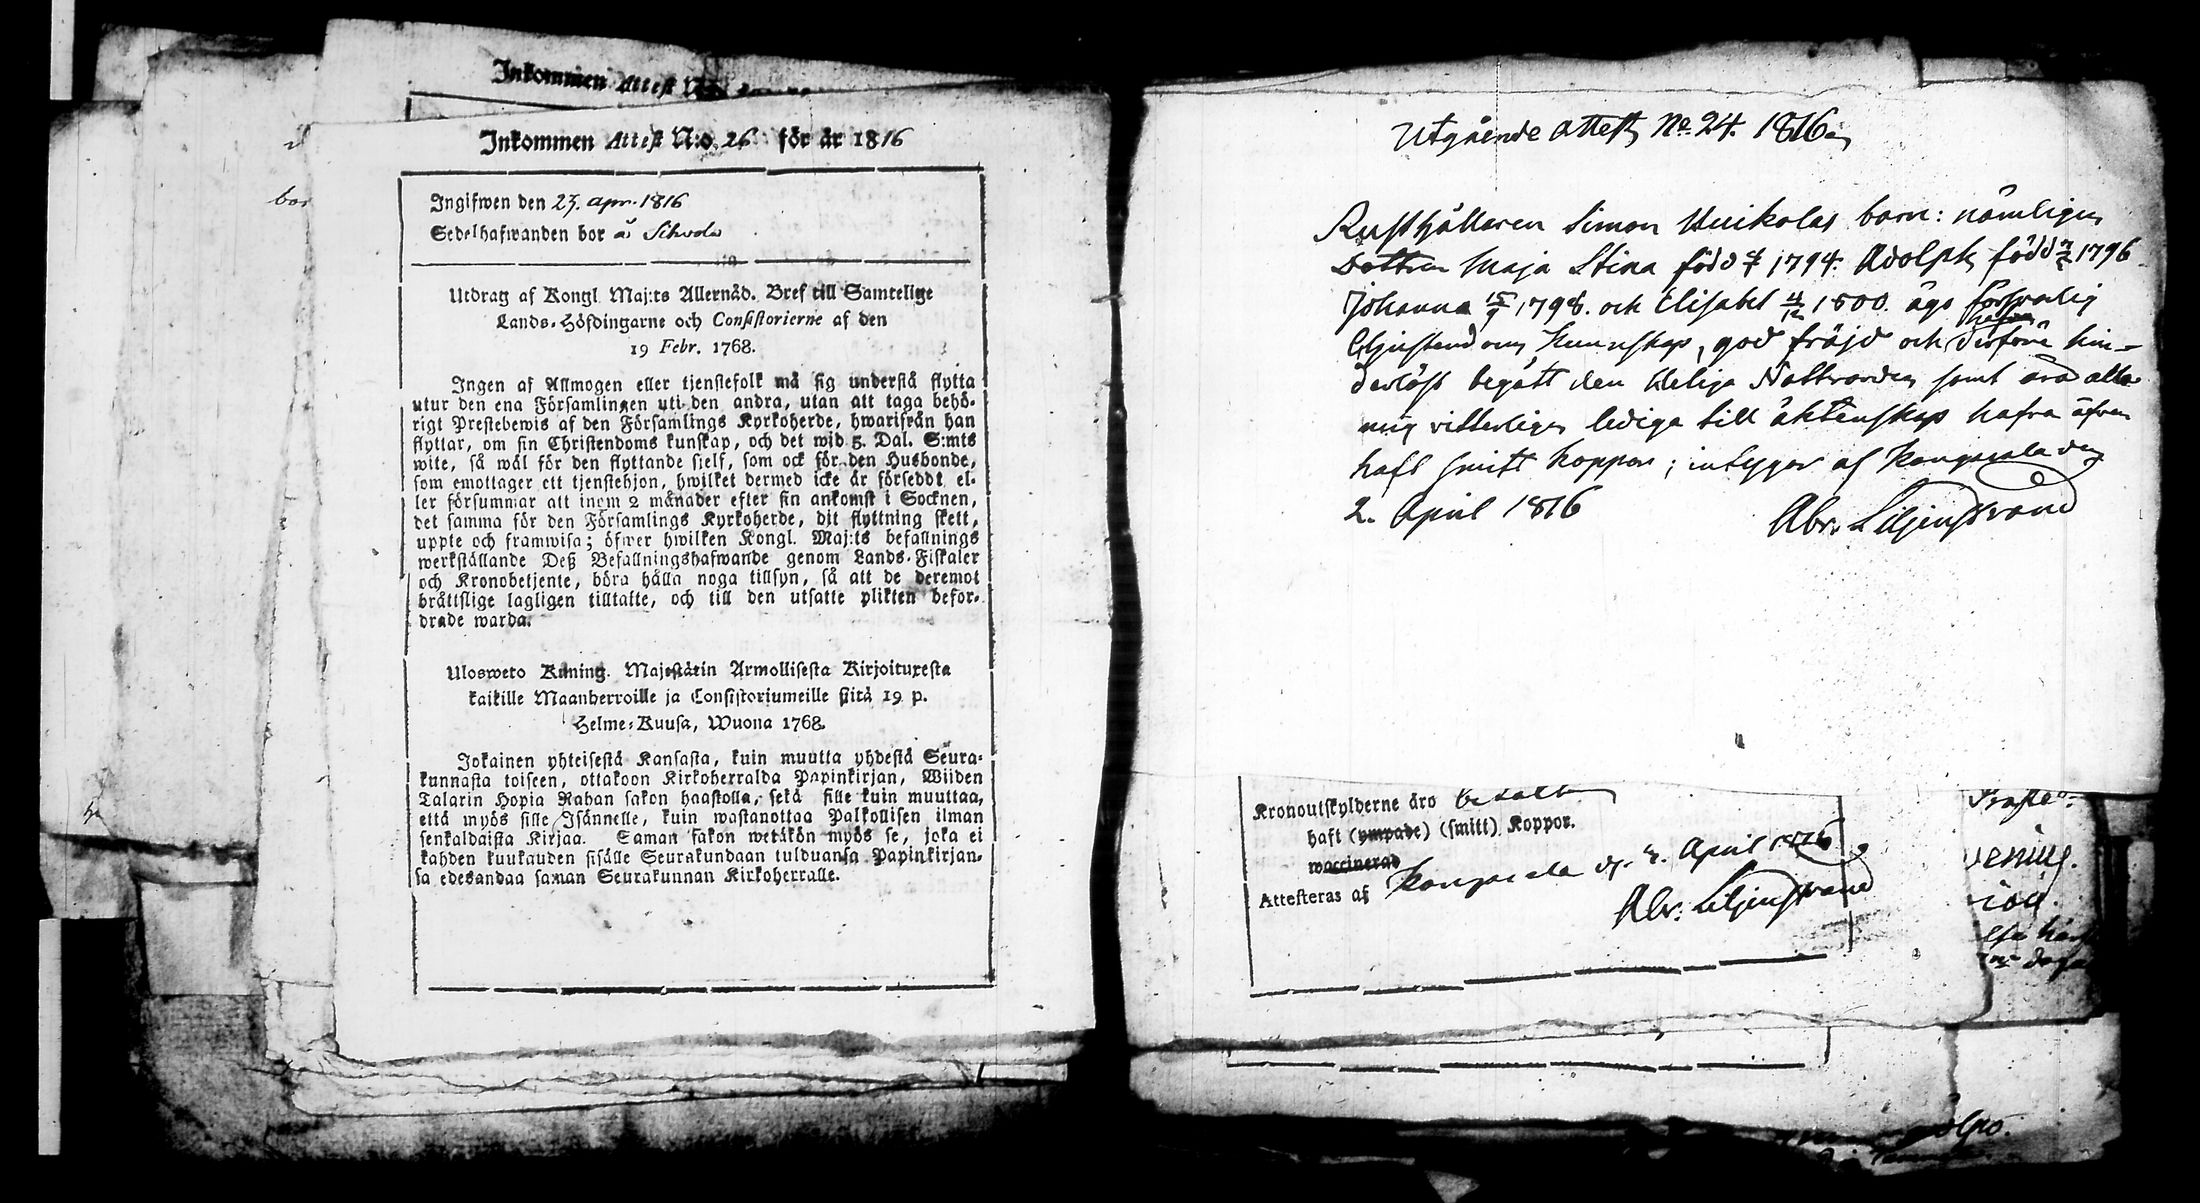 Inkommen Attest
Inkommen Attest N:o 26 för år 1816
Ingifwen den 23. apr. 1816
Sedelhafwanden bor å
Utdrag af Kongl. Maj:ts Allernåd. Bref till Samtelige
Lands-Höfdingarne och Consistorierne af den
19 Febr. 1768.
Ingen af Allmogen eller tjenstefolk må sig understå flytta
utur den ena Församlingen uti den andra, utan att taga behö-
rigt Prestebewis af den Församlings Kyrkoherde, hwarifrån han
flyttar, om sin Christendoms kunskap, och det wid 5. Dal. S:mts
wite, så wäl för den flyttande sjelf, som ock för den Husbonde,
som emottager ett tjenstehjon, hwilket dermed icke är försedt, el-
ler försummar att inom 2 månader efter sin ankomst i Socknen,
det samma för den Församlings Kyrkoherde, dit flyttning skett,
uppte och framwisa; öfwer hwilken Kongl. Maj:ts befallnings
werkställande Deß Befallningshafwande genom Lands-Fiskaler
och Kronobetjente, böra hålla noga tillsyn, så att de deremot
bråttslige lagligen tilltalte, och till den utsatte plikten befor-
drade warda.
Ulosweto Kuning. Majestätin Armollisesta Kirjoituxesta
kaikille Maanherroille ja Consistoriumeille siitä 19 p.
Helme-Kuusa, Wuona 1768.
Jokainen yhteisestä Kansasta, kuin muutta yhdestä Seura-
kunnasta toiseen, ottakoon Kirkoherralda Papinkirjan, Wiiden
Talarin Hopia Rahan sakon haastolla, sekä sille kuin muuttaa,
että myös sille Isännelle, kuin wastanottaa Palkollisen ilman
senkaldaista Kirjaa. Saman sakon wetäkön myös se, joka ei
kahden kuukauden sisälle Seurakundaan tulduansa Papinkirjan-
sa edesandaa saman Seurakunnan Kirkoherralle.
Utgående attest No 24. 1816
Rusthållaren Simon Uuikolas barn: nämligen
Dottren Maja Stina född 1794. Adolph född 1796
Johanna 15/9 1798. och Elisabet 4/12 1800. äga försvarlig
Christendoms kunnskap, god fräjd och hafva derföre hin-
derlöst begått den Heliga Nattvarden samt äro alla
mig vitterligen lediga till äktenskap hafva äfven
haft smitt koppor; intygar af Kangasala den
2. April 1816
Abr. Liljenstrand
Kronoutskylderne äro betalt
haft (ympade) (smitt) Koppor.
waccinerad
Attesteras af Kangasala d. 2. April 1816
Abr: Liljenstrand